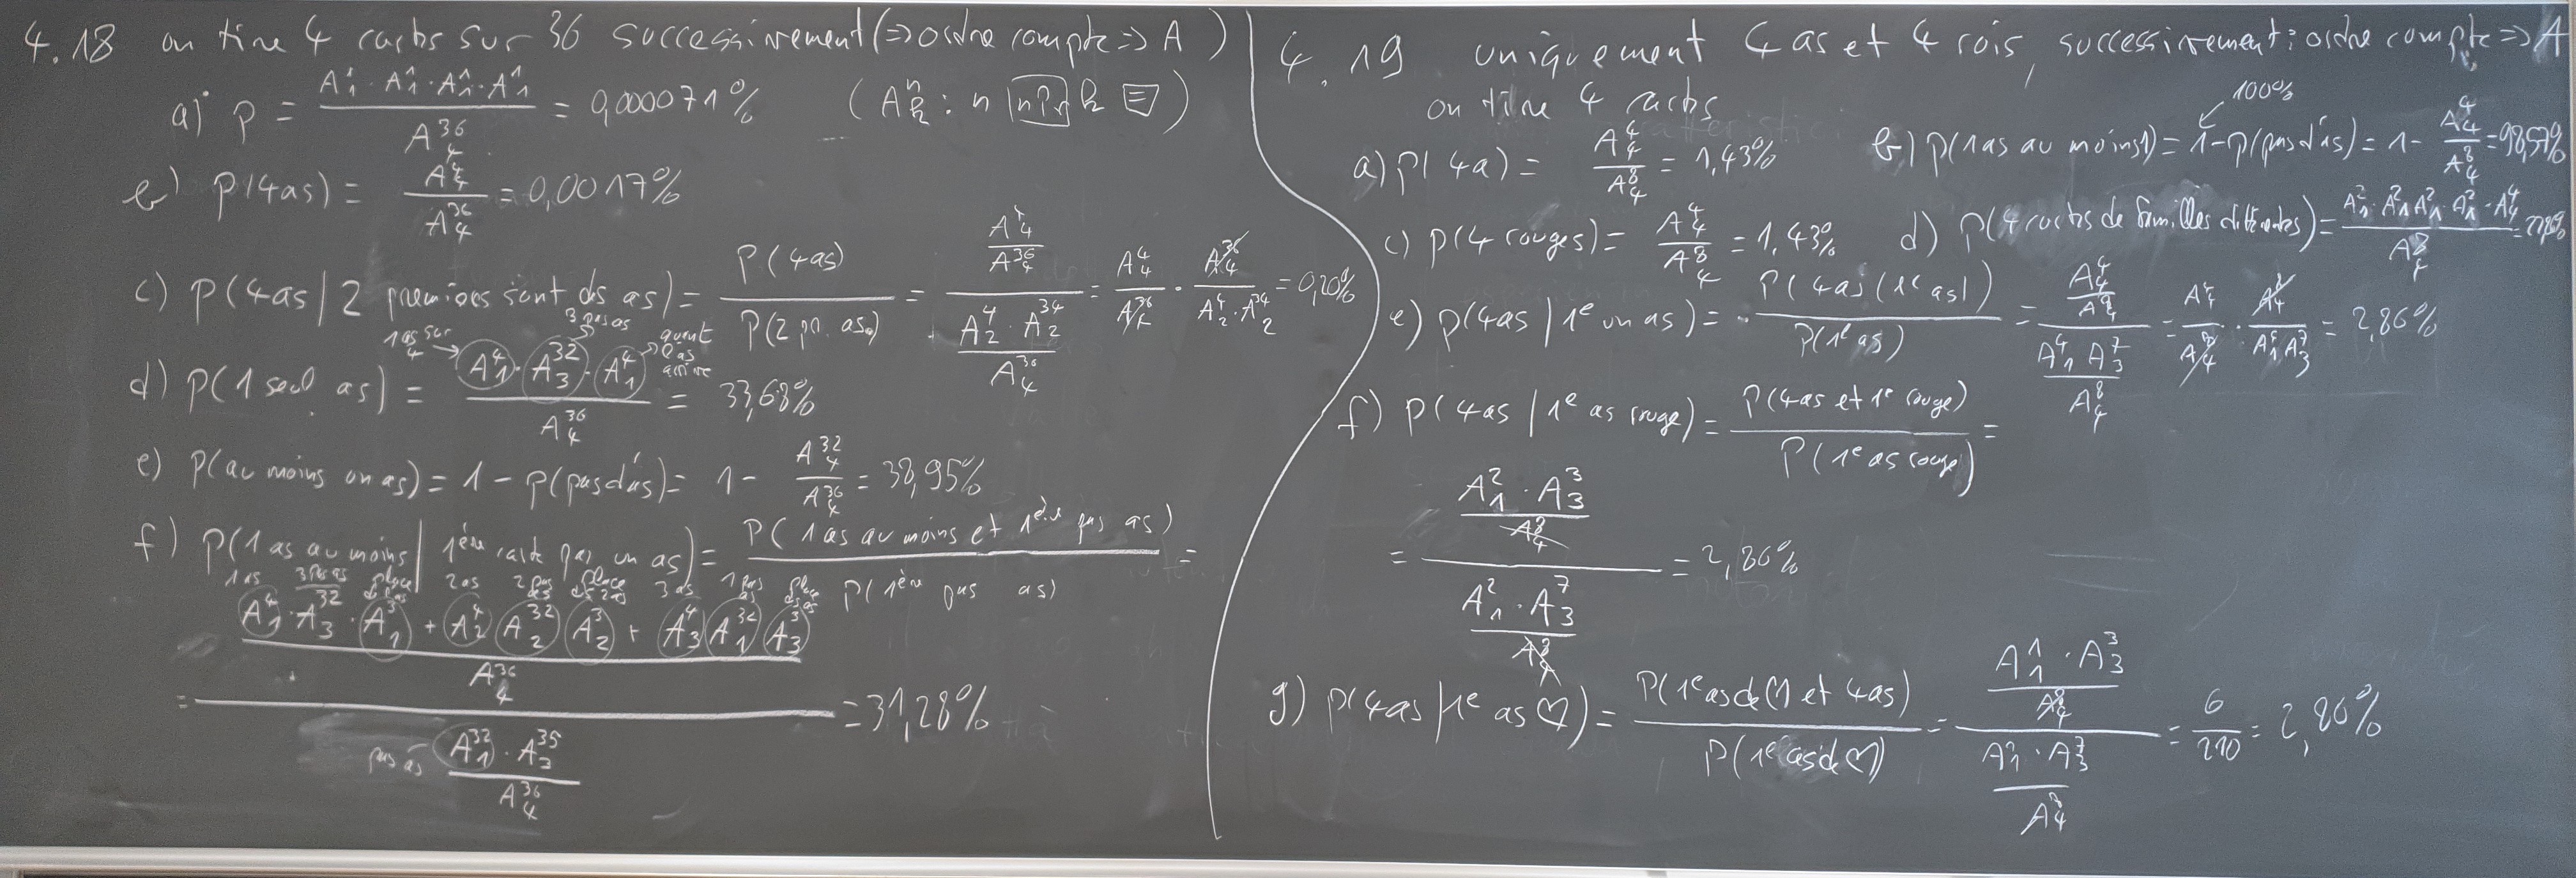 4.18 on tire 4 cartes sur 36 successivement (=> ordre compte => A)
a) p = (A^1_1 · A^1_1 · A^1_1 · A^1_1) / A^36_4 = 0,000071% (A^n_k : n [nPr] k [=])
b) P(4as) = A^4_4 / A^36_4 = 0,0017%
c) P(4as | 2 premières sont des as) = P(4as) / P(2 pr. as) = (A^4_4 / A^36_4) / (A^4_2 · A^34_2 / A^36_4) = A^4_4 / A^36_4 · A^36_4 / (A^4_2 · A^34_2) = 0,20%
1 as sur 4 → 3 pas as quant l'as arrive
d) P(1 seul as) = (A^4_1 · A^32_3 · A^4_1) / A^36_4 = 33,68%
e) P(au moins un as) = 1 - P(pas d'as) = 1 - A^32_4 / A^36_4 = 38,95%
f) P(1 as au moins | 1ère carte pas un as) = P(1 as au moins et 1ère pas as) / P(1ère pas as) =
1 as 3 pas as place de l'as 2 as 2 pas as place des 2 as 3 as 1 pas as place des as
= ((A^4_1 · A^32_3 · A^3_1 + A^4_2 A^32_2 A^3_2 + A^4_3 A^32_1 A^3_3) / A^36_4) / (A^32_1 · A^35_3 / A^36_4) = 31,28%
pas as
4.19 uniquement 4 as et 4 rois, successivement : ordre compte => A
on tire 4 cartes
a) P(4a) = A^4_4 / A^8_4 = 1,43%
100%
b) P(1as au moins1) = 1 - P(pas d'as) = 1 - A^4_4 / A^8_4 = 98,57%
c) P(4 rouges) = A^4_4 / A^8_4 = 1,43%
d) P(4 cartes de familles différentes) = (A^2_1 · A^2_1 A^2_1 · A^2_1 · A^4_4) / A^8_4 =
e) P(4as | 1e un as) = P(4as (1e as)) / P(1e as) = (A^4_4 / A^8_4) / (A^4_1 A^7_3 / A^8_4) = A^4_4 / A^8_4 · A^8_4 / (A^4_1 A^7_3) = 2,86%
f) P(4as | 1e as rouge) = P(4as et 1e rouge) / P(1e as rouge) =
= (A^2_1 · A^3_3 / A^8_4) / (A^2_1 · A^7_3 / A^8_4) = 2,86%
g) P(4as | 1e as ♡) = P(1e as de ♡ et 4as) / P(1e as de ♡) = (A^1_1 · A^3_3 / A^8_4) / (A^1_1 · A^7_3 / A^8_4) = 6 / 210 = 2,86%